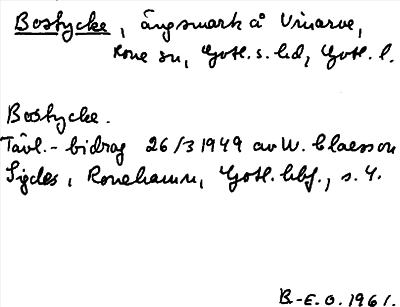 Bostycke, ängsmark å Vinarve,
Rone sn, Gotl. s. hd, Gotl. l.
Bostycke.
Tävl.-bidrag 26/3 1949 av W. Claesson
Sigdes, Ronehamn, Gotl. hbf., s. 4.
B.-E. O. 1961.